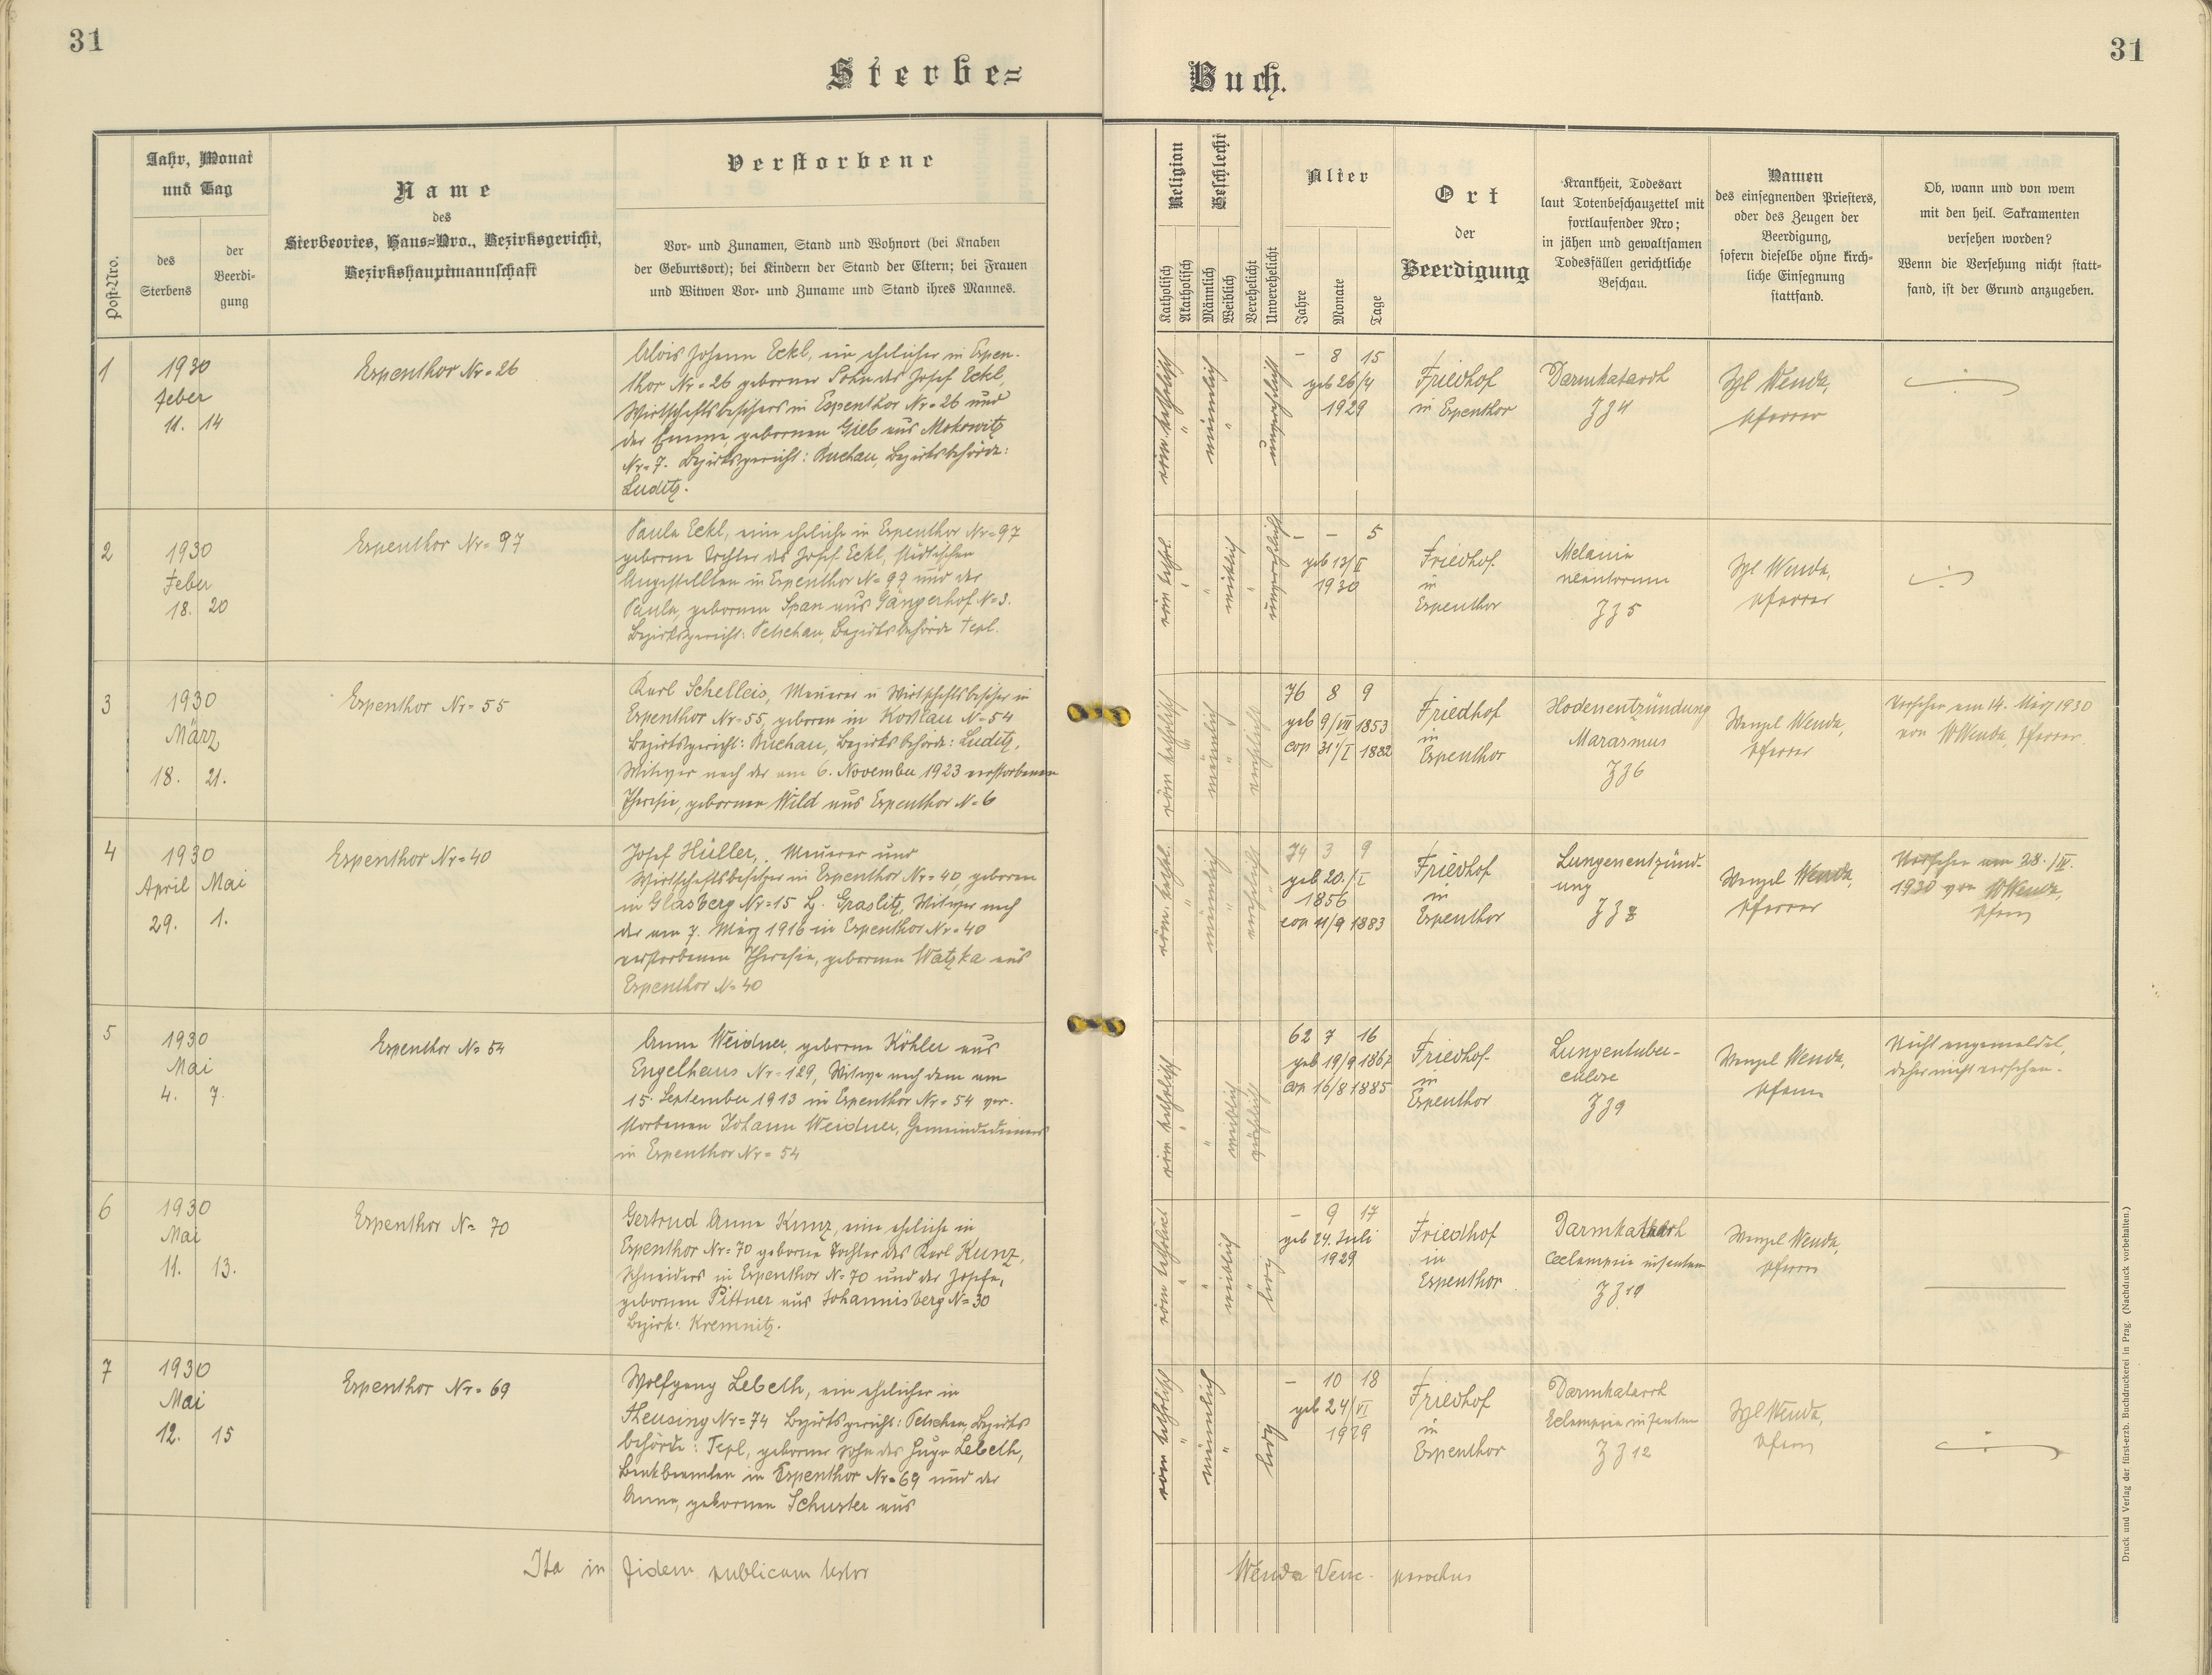 31
Sterbe=
Jahr, Monat
und Tag
Post-Nro.
des
Sterbens
der
Beerdi-
gung
Name
des
Sterbeortes, Haus=Nro., Bezirksgericht,
Bezirkshauptmannschaft
Verstorbene
Vor- und Zunamen, Stand und Wohnort (bei Knaben
der Geburtsort); bei Kindern der Stand der Eltern; bei Frauen
und Witwen Vor- und Zuname und Stand ihres Mannes.
1
1930
Feber
11. 14
Espenthor Nr= 26
Alois Johann Eckl, ein ehelicher in Espen-
thor Nr= 26 geborner Sohn des Josef Eckl,
Wirtschaftsbesitzers in Espenthor Nr= 26 und
der Emma, gebornen Gieb aus Mokowitz
Nr= 7. Bezirksgericht: Buchau, Bezirksbehörde:
Luditz.
2
1930
Feber
18. 20
Espenthor Nr= 97
Paula Eckl, eine eheliche in Espenthor Nr= 97
geborne Tochter des Josef Eckl, städtischen
Angestellten in Espenthor N= 97 und der
Paula, gebornen Span aus Gängerhof N=3.
Bezirksgericht: Petschau, Bezirksbehörde Tepl.
3
1930
März
18. 21.
Espenthor Nr= 55
Karl Schelleis, Maurer u Wirtschaftsbesitzer in
Espenthor Nr= 55, geboren in Koßlau N= 54
Bezirksgericht: Buchau, Bezirksbehörde: Luditz,
Witwer nach der am 6. November 1923 verstorbenen
Theresie, gebornen Wild aus Espenthor N= 6
4
1930
April Mai
29. 1.
Espenthor Nr= 40
Josef Hüller, Maurer und
Wirtschaftsbesitzer in Espenthor Nr= 40, geboren
in Glasberg Nr=15 Graslitz, Witwer nach
der am 7. März 1916 in Espenthor Nr= 40
verstorbenen Theresia, gebornen Watzka aus
Espenthor N= 40
5
1930
Mai
4. 7.
Espenthor N= 54
Anna Weidner, geborne Köhler aus
Engelhaus Nr= 129, Witwe nach dem am
15. September 1913 in Espenthor Nr= 54 ver-
storbenen Johann Weidner, Gemeindedieners
in Espenthor Nr= 54
6
1930
Mai
11. 13.
Espenthor N= 70
Gertrud Anna Kunz, eine eheliche in
Espenthor Nr= 70 geborne Tochter des Karl Kunz,
Schneiders in Espenthor N= 70 und der Josefa,
gebornen Pittner aus Johannisberg N= 30
Bezirk: Kremnitz.
7
1930
Mai
12. 15
Espenthor Nr= 69
Wolfgang Lebeth, ein ehelicher in
Theusing Nr= 74 Bezirksgericht: Petschau, Bezirks
behörde: Tepl, geborner Sohn des Hugo Lebeth,
Bankbeamten in Espenthor Nr= 69 und der
Anna, gebornen Schuster aus
Ita in fidem publicam testor
31
Buch.
Religion
Katholisch
Akatholisch
Geschlecht
Männlich
Weiblich
Verehelicht
Unverehelicht
Alter
Jahre
Monate
Tage
Ort
der
Beerdigung
Krankheit, Todesart
laut Totenbeschauzettel mit
fortlaufender Nro;
in jähen und gewaltsamen
Todesfällen gerichtliche
Beschau.
Namen
des einsegnenden Priesters,
oder des Zeugen der
Beerdigung,
sofern dieselbe ohne kirch-
liche Einsegnung
stattfand.
Ob, wann und von wem
mit den heil. Sakramenten
versehen worden?
Wenn die Versehung nicht statt-
fand, ist der Grund anzugeben.
röm. katholisch
männlich
unverehelicht
- 8 15
geb 26/4
1929
Friedhof
in Espenthor
Darmkatarrh
Z J 4
Wzl Wenda,
Pfarrer
röm. kathol.
weiblich
unverehelicht
- - 5
geb 13/II
1930
Friedhof
in
Espenthor
Melaina
neantorum
Z J 5
Wzl Wenda,
Pfarrer
röm katholisch
männlich
verehelicht
76 8 9
geb 9/VII 1853
cop 31/I 1882
Friedhof
in
Espenthor
Hodenentzündung
Marasmus
Z J 6
Wenzel Wenda,
Pfarrer
Versehen am 14. März 1930
von W Wenda, Pfarrer
röm. kathol.
männlich
verehelicht
74 3 9
geb 20./I
1856
cop 11/9 1883
Friedhof
in
Espenthor
Lungenentzünd-
ung
Z J 8
Wenzel Wenda,
Pfarrer
Versehen am 28./IV.
1930 von W Wenda,
Pfarrer
röm katholisch
weiblich
verehelicht
62 7 16
geb 19/9 1867
cop 16/8 1885
Friedhof
in
Espenthor
Lungentuber-
culose
Z J 9
Wenzel Wenda,
Pfarrer
Nicht angemeldet,
daher nicht versehen.
röm katholisch
weiblich
ledig
- 9 17
geb 24. Juli
1929
Friedhof
in
Espenthor
Darmkatarrh
Eclampsia infantum
Z J 10
Wenzel Wenda,
Pfarrer
röm katholisch
männlich
ledig
- 10 18
geb 24/VI
1929
Friedhof
in
Espenthor
Darmkatarrh
Eclampsia infantum
Z J 12
Wzl Wenda,
Pfarrer
Wenda Venc. parochus
Druck und Verlag der fürst-erzb. Buchdruckerei in Prag. (Nachdruck vorbehalten.)